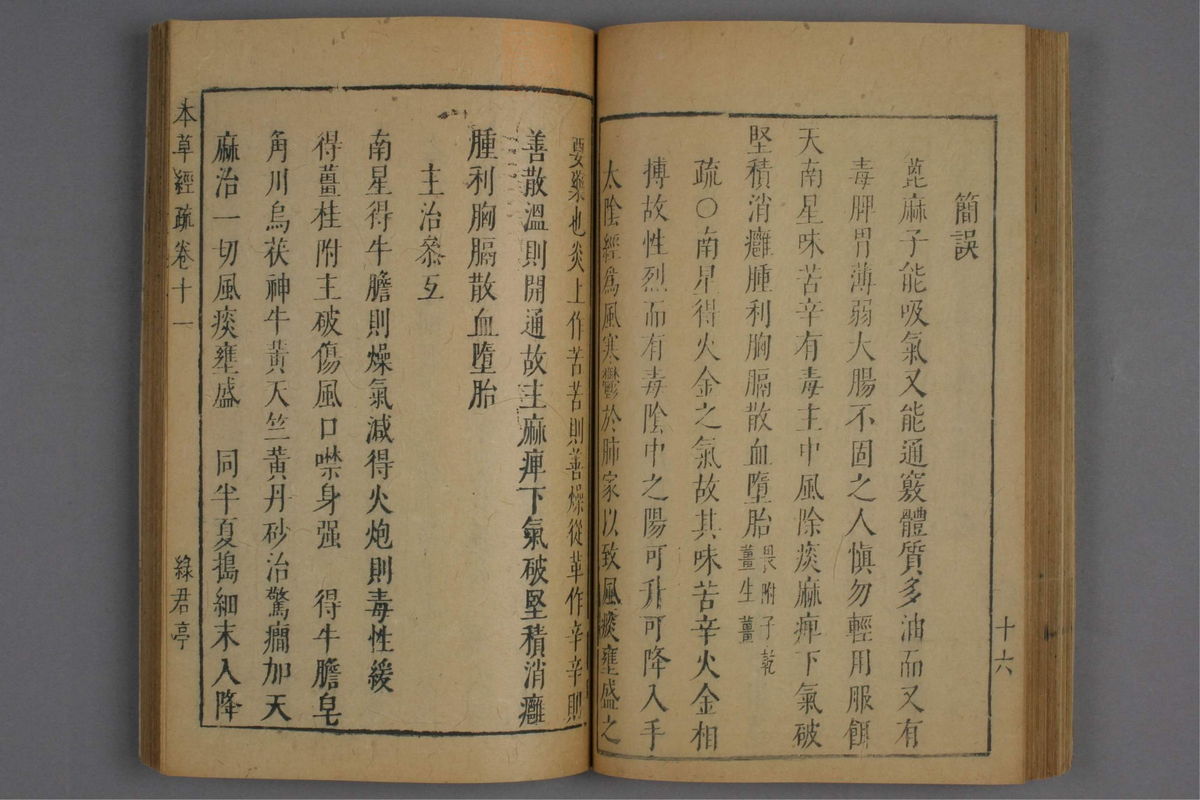 十六
簡誤
蓖麻子能吸氣又能通竅體質多油而又有
毒脾胃薄弱大腸不固之人慎勿輕用服餌
天南星味苦辛有毒主中風除痰麻痺下氣破
堅積消癰腫利胸膈散血墮胎畏附子乾薑生薑
疏○南星得火金之氣故其味苦辛火金相
搏故性烈而有毒陰中之陽可升可降入手
太陰經爲風寒鬱於肺家以致風痰壅盛之
要藥也炎上作苦苦則善燥從革作辛辛則
善散溫則開通故主麻痺下氣破堅積消癰
腫利胸膈散血墮胎
主治叅互
南星得牛膽則燥氣減得火炮則毒性緩
得薑桂附主破傷風口噤身强 得牛膽皂
角川烏茯神牛黃天竺黃丹砂治驚癎加天
麻治一切風痰壅盛 同半夏搗細末入降
本草經疏卷十一
綠君亭